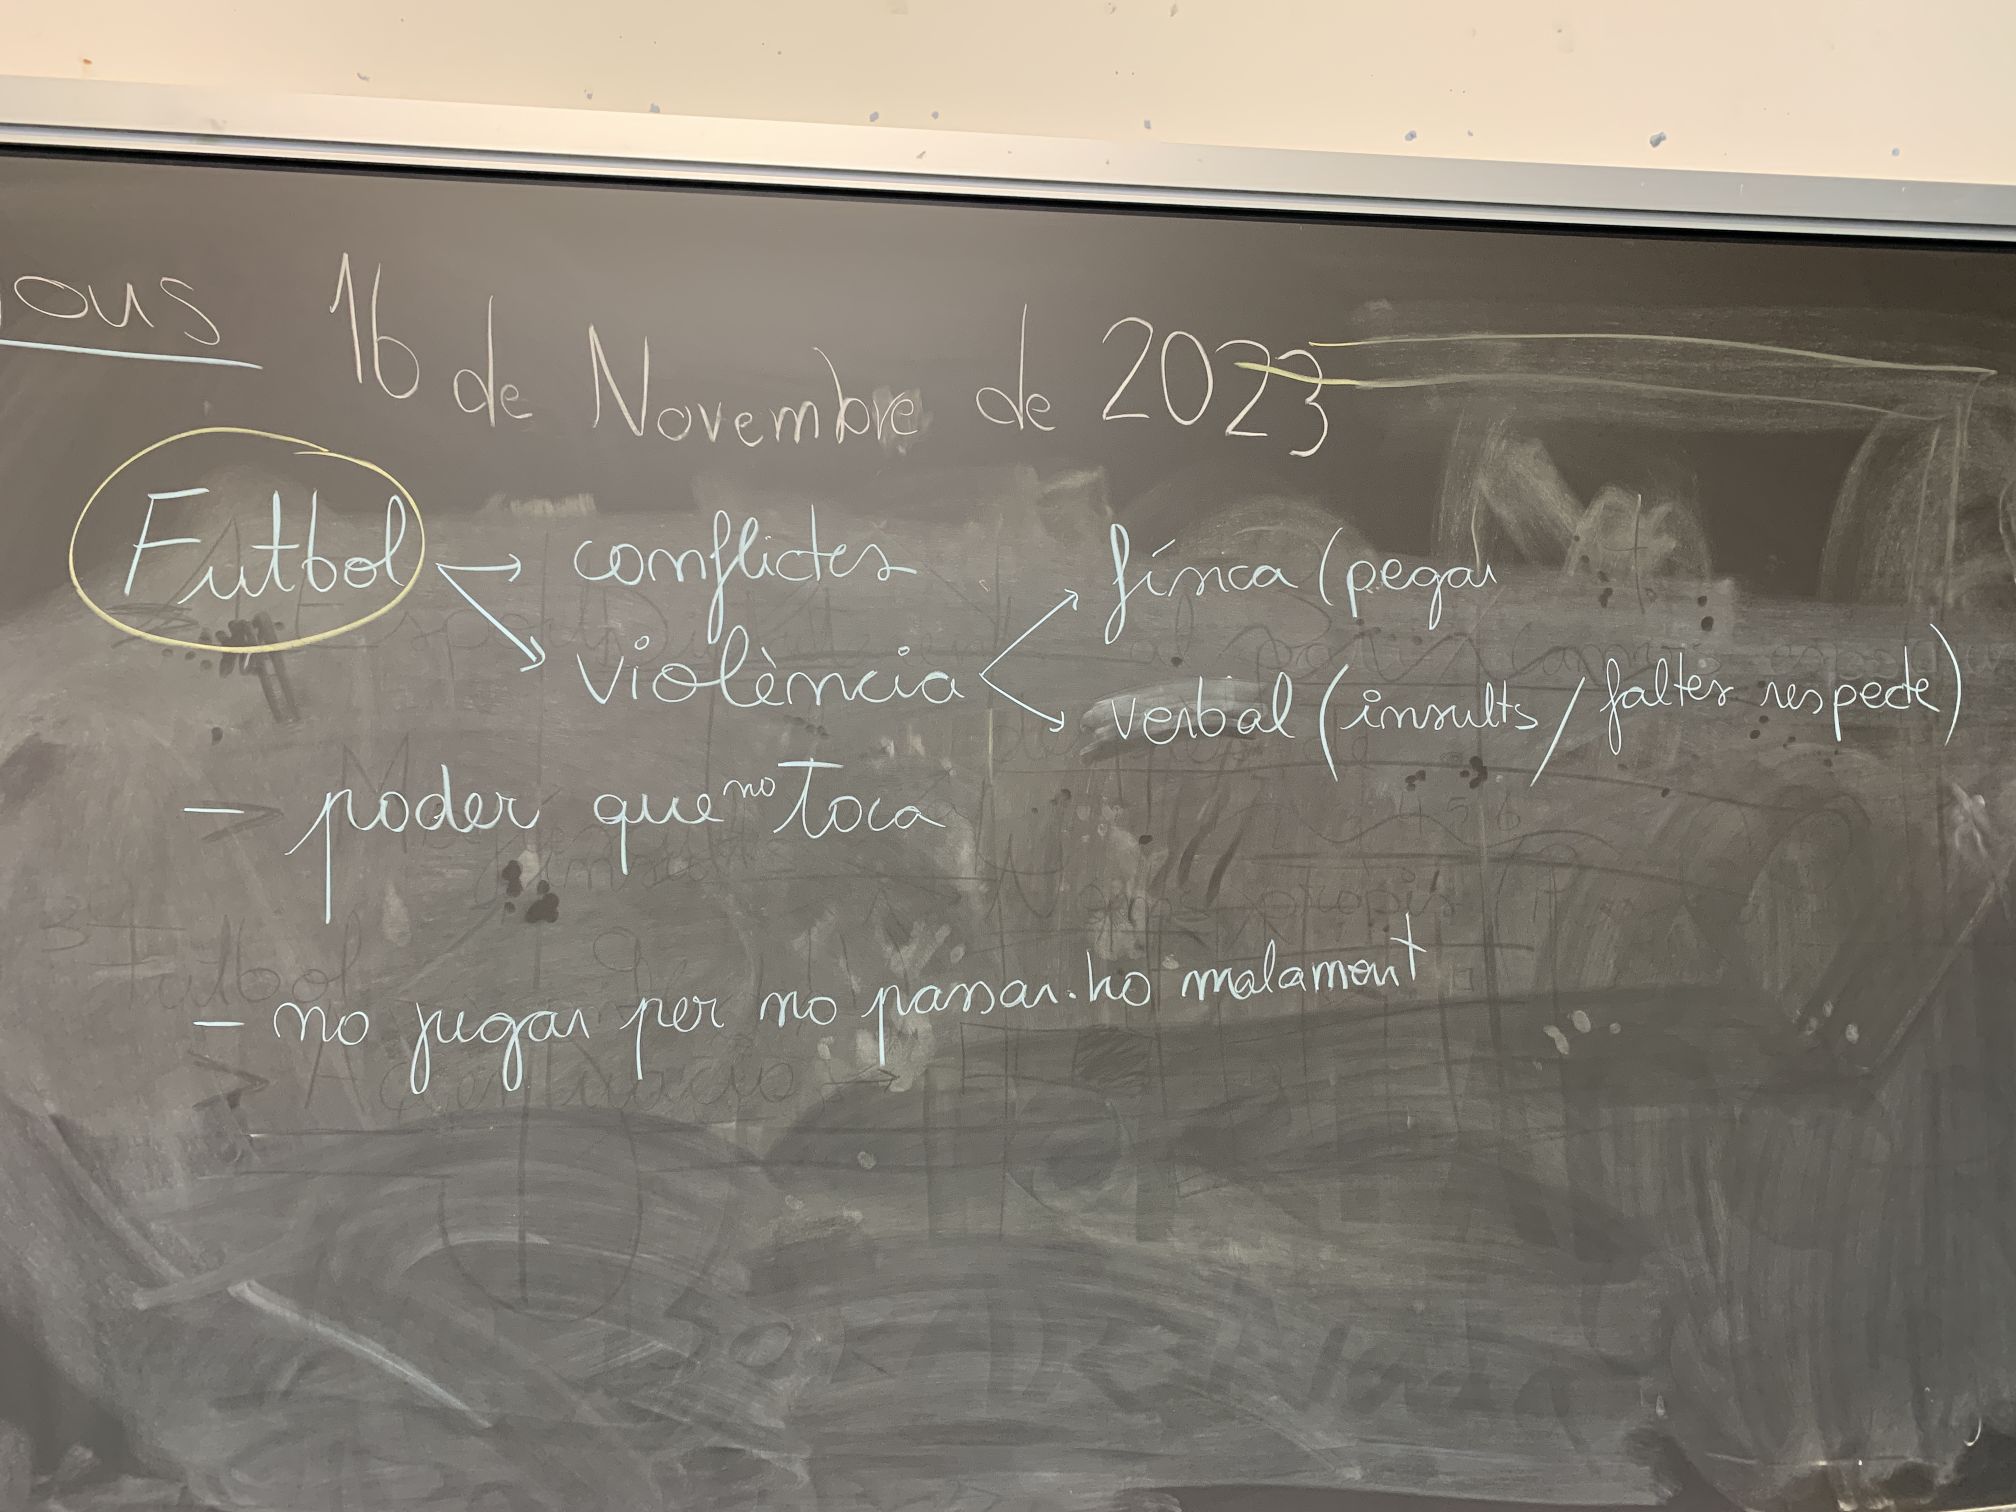 Jous 16 de Novembre de 2023
Futbol → conflictes
física (pegar
violència
verbal (insults / faltes respecte)
- poder que no toca
- no jugar per no passar-ho malament